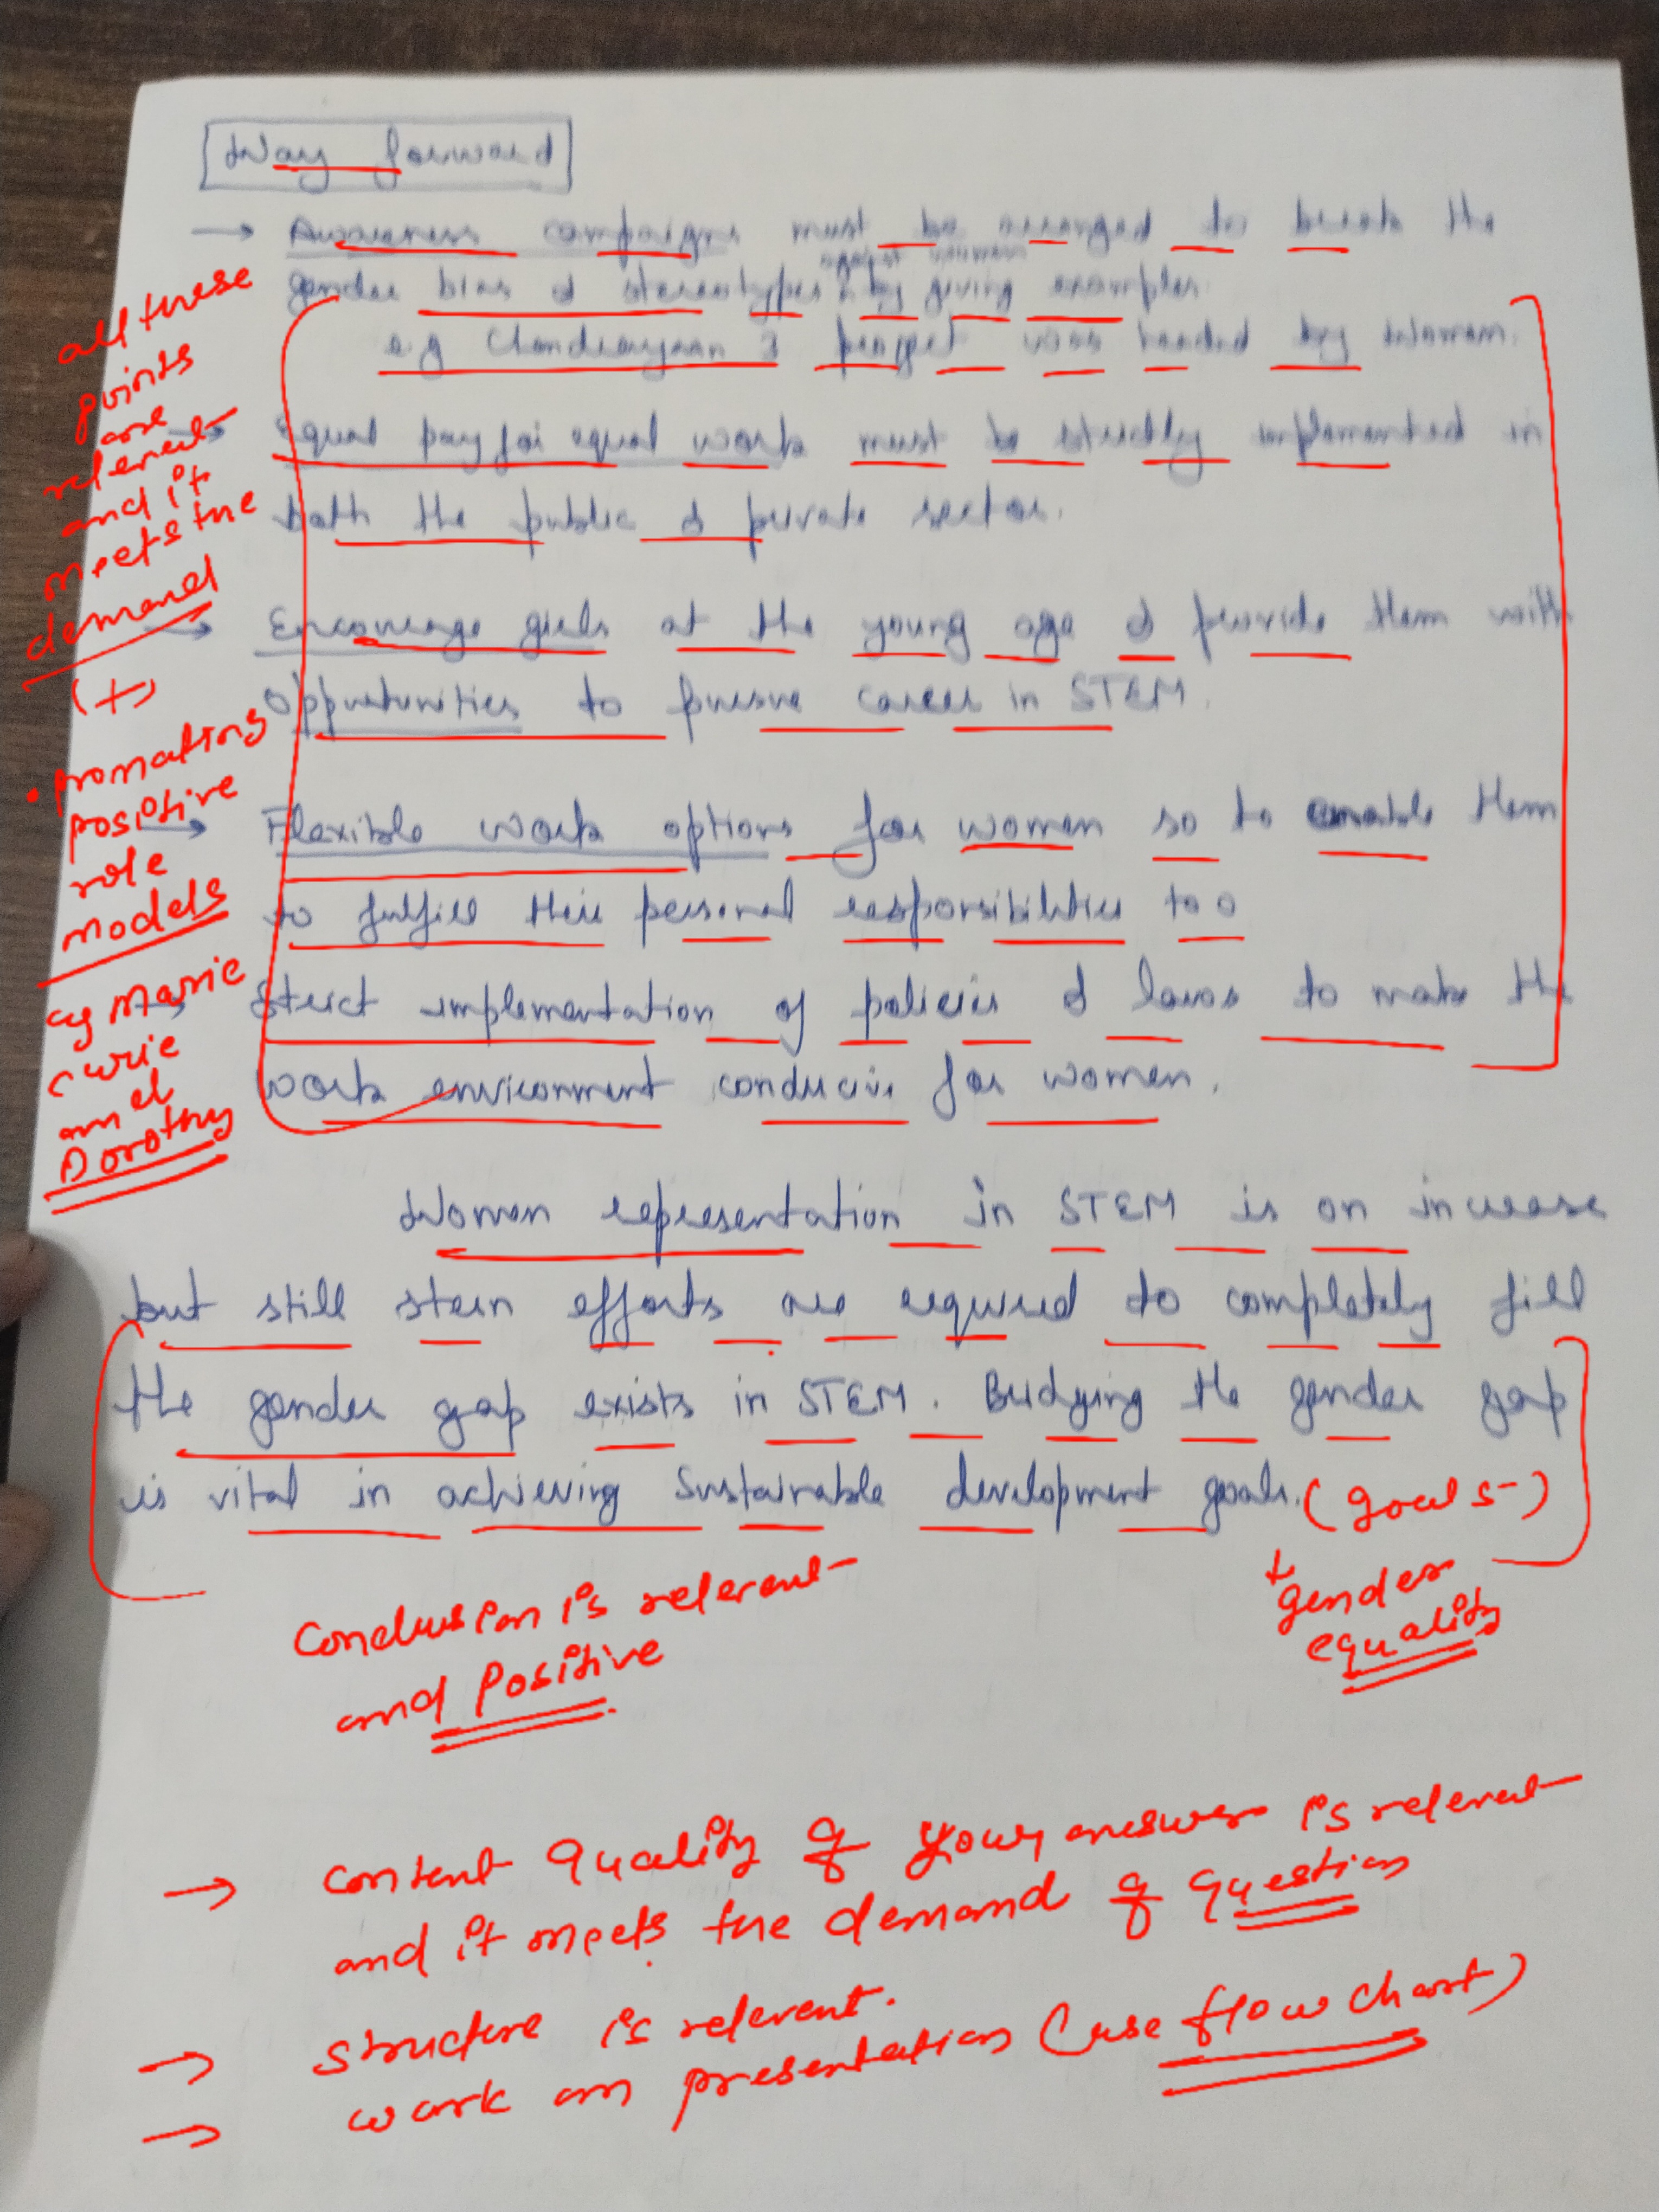 Way forward
→ Awareness campaigns must be arranged to break the
against women
gender bias & stereotypes by giving examples.
e.g Chandrayaan 3 project was headed by women.
→ Equal pay for equal work must be strictly implemented in
both the public & private sector.
→ Encourage girls at the young age & provide them with
Oppurtunities to pursue career in STEM.
→ Flexible work options for women so to enable them
to fulfill their personal responsibilities too
→ Strict implementation of policies & laws to make the
work environment conducive for women.
all these
points
are
relevent
and it
meets the
demand
(+)
• promoting
positive
role
models
eg Marie
curie
and
Dorothy
Women representation in STEM is on increase
but still stern efforts are required to completely fill
the gender gap exists in STEM. Bridging the gender gap
is vital in achieving Sustainable development goals. (goal 5-)
↓
gender
equality
Conclusion is relevent
and Positive
→ content quality of your answer is relevent
and it meets the demand of question
→ structure is relevent.
→ work on presentation (use flow chart)